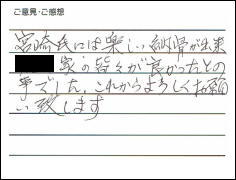 ご意見・ご感想
宮崎氏には楽しい納骨が出来
家の皆々が良かったとの
事でした。これからよろしくお願
い致します